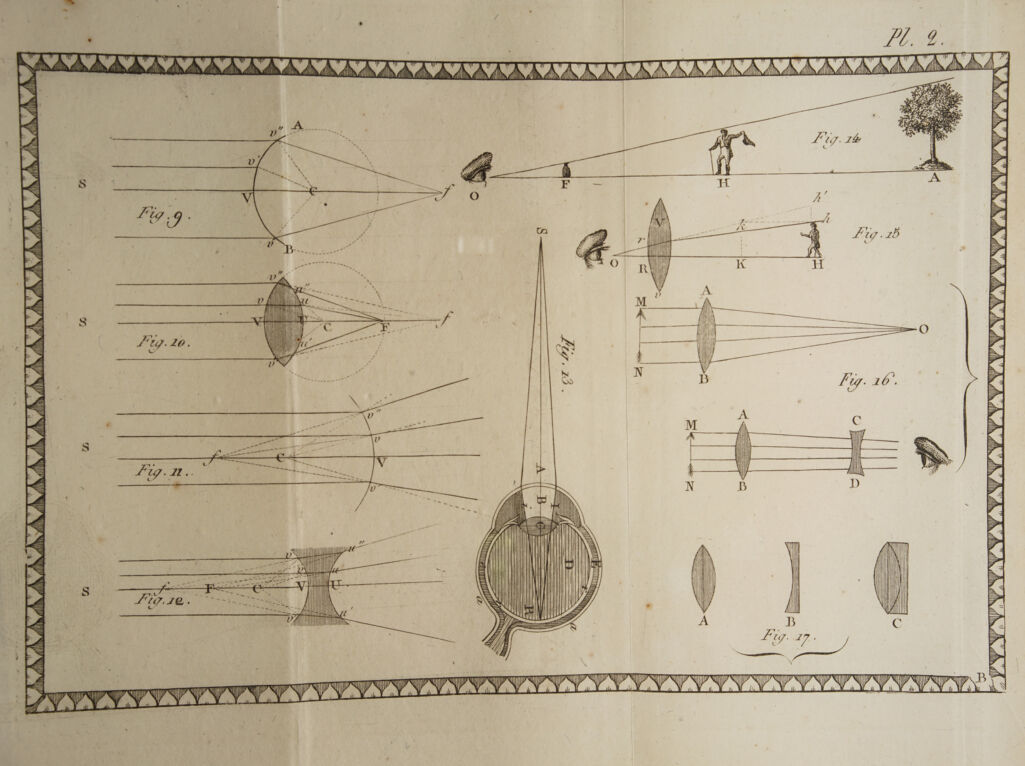 Pl. 2.
v" A
v'
S
V C f
Fig. 9.
v B
v" u"
v u
S V U C F f
Fig. 10.
u'
v
v"
v
S f C V
Fig. 11.
v
v u"
v u
S f F C V U
Fig. 12.
v u'
S
Fig. 13.
A
B
D
E
R
a
e
Fig. 14
O F H A
h'
V k h
r
Fig. 15
O R K H
v
A
M
O
N
B
Fig. 16.
A C
M
N B D
A B C
Fig. 17.
B